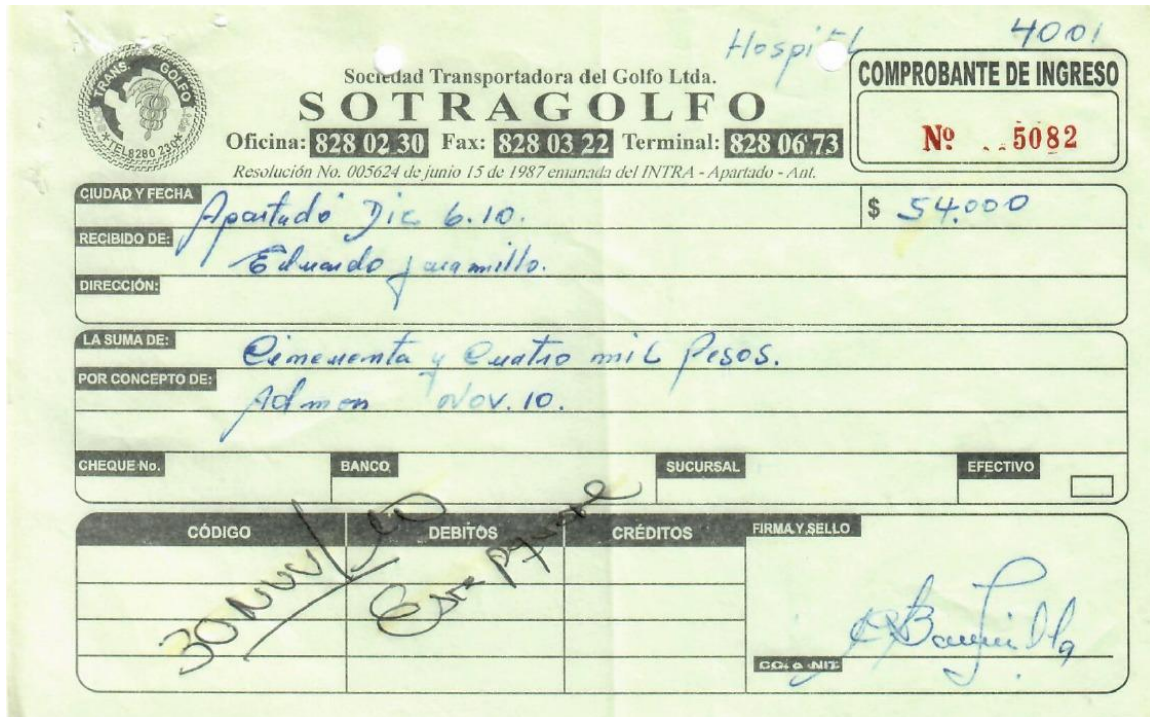 Hospital 4001
TRANS GOLFO
TEL 8280 230
Sociedad Transportadora del Golfo Ltda.
SOTRAGOLFO
Oficina: 828 02 30 Fax: 828 03 22 Terminal: 828 06 73
Resolución No. 005624 de junio 15 de 1987 emanada del INTRA - Apartado - Ant.
COMPROBANTE DE INGRESO
Nº 5082
CIUDAD Y FECHA Apartadó Dic 6.10. $ 54.000
RECIBIDO DE: Eduardo Jaramillo.
DIRECCIÓN:
LA SUMA DE: Cincuenta y Cuatro mil Pesos.
POR CONCEPTO DE: Admon Nov. 10.
CHEQUE No. BANCO SUCURSAL EFECTIVO
CÓDIGO DEBITOS CRÉDITOS FIRMA Y SELLO
30 NOV
C.C. o NIT